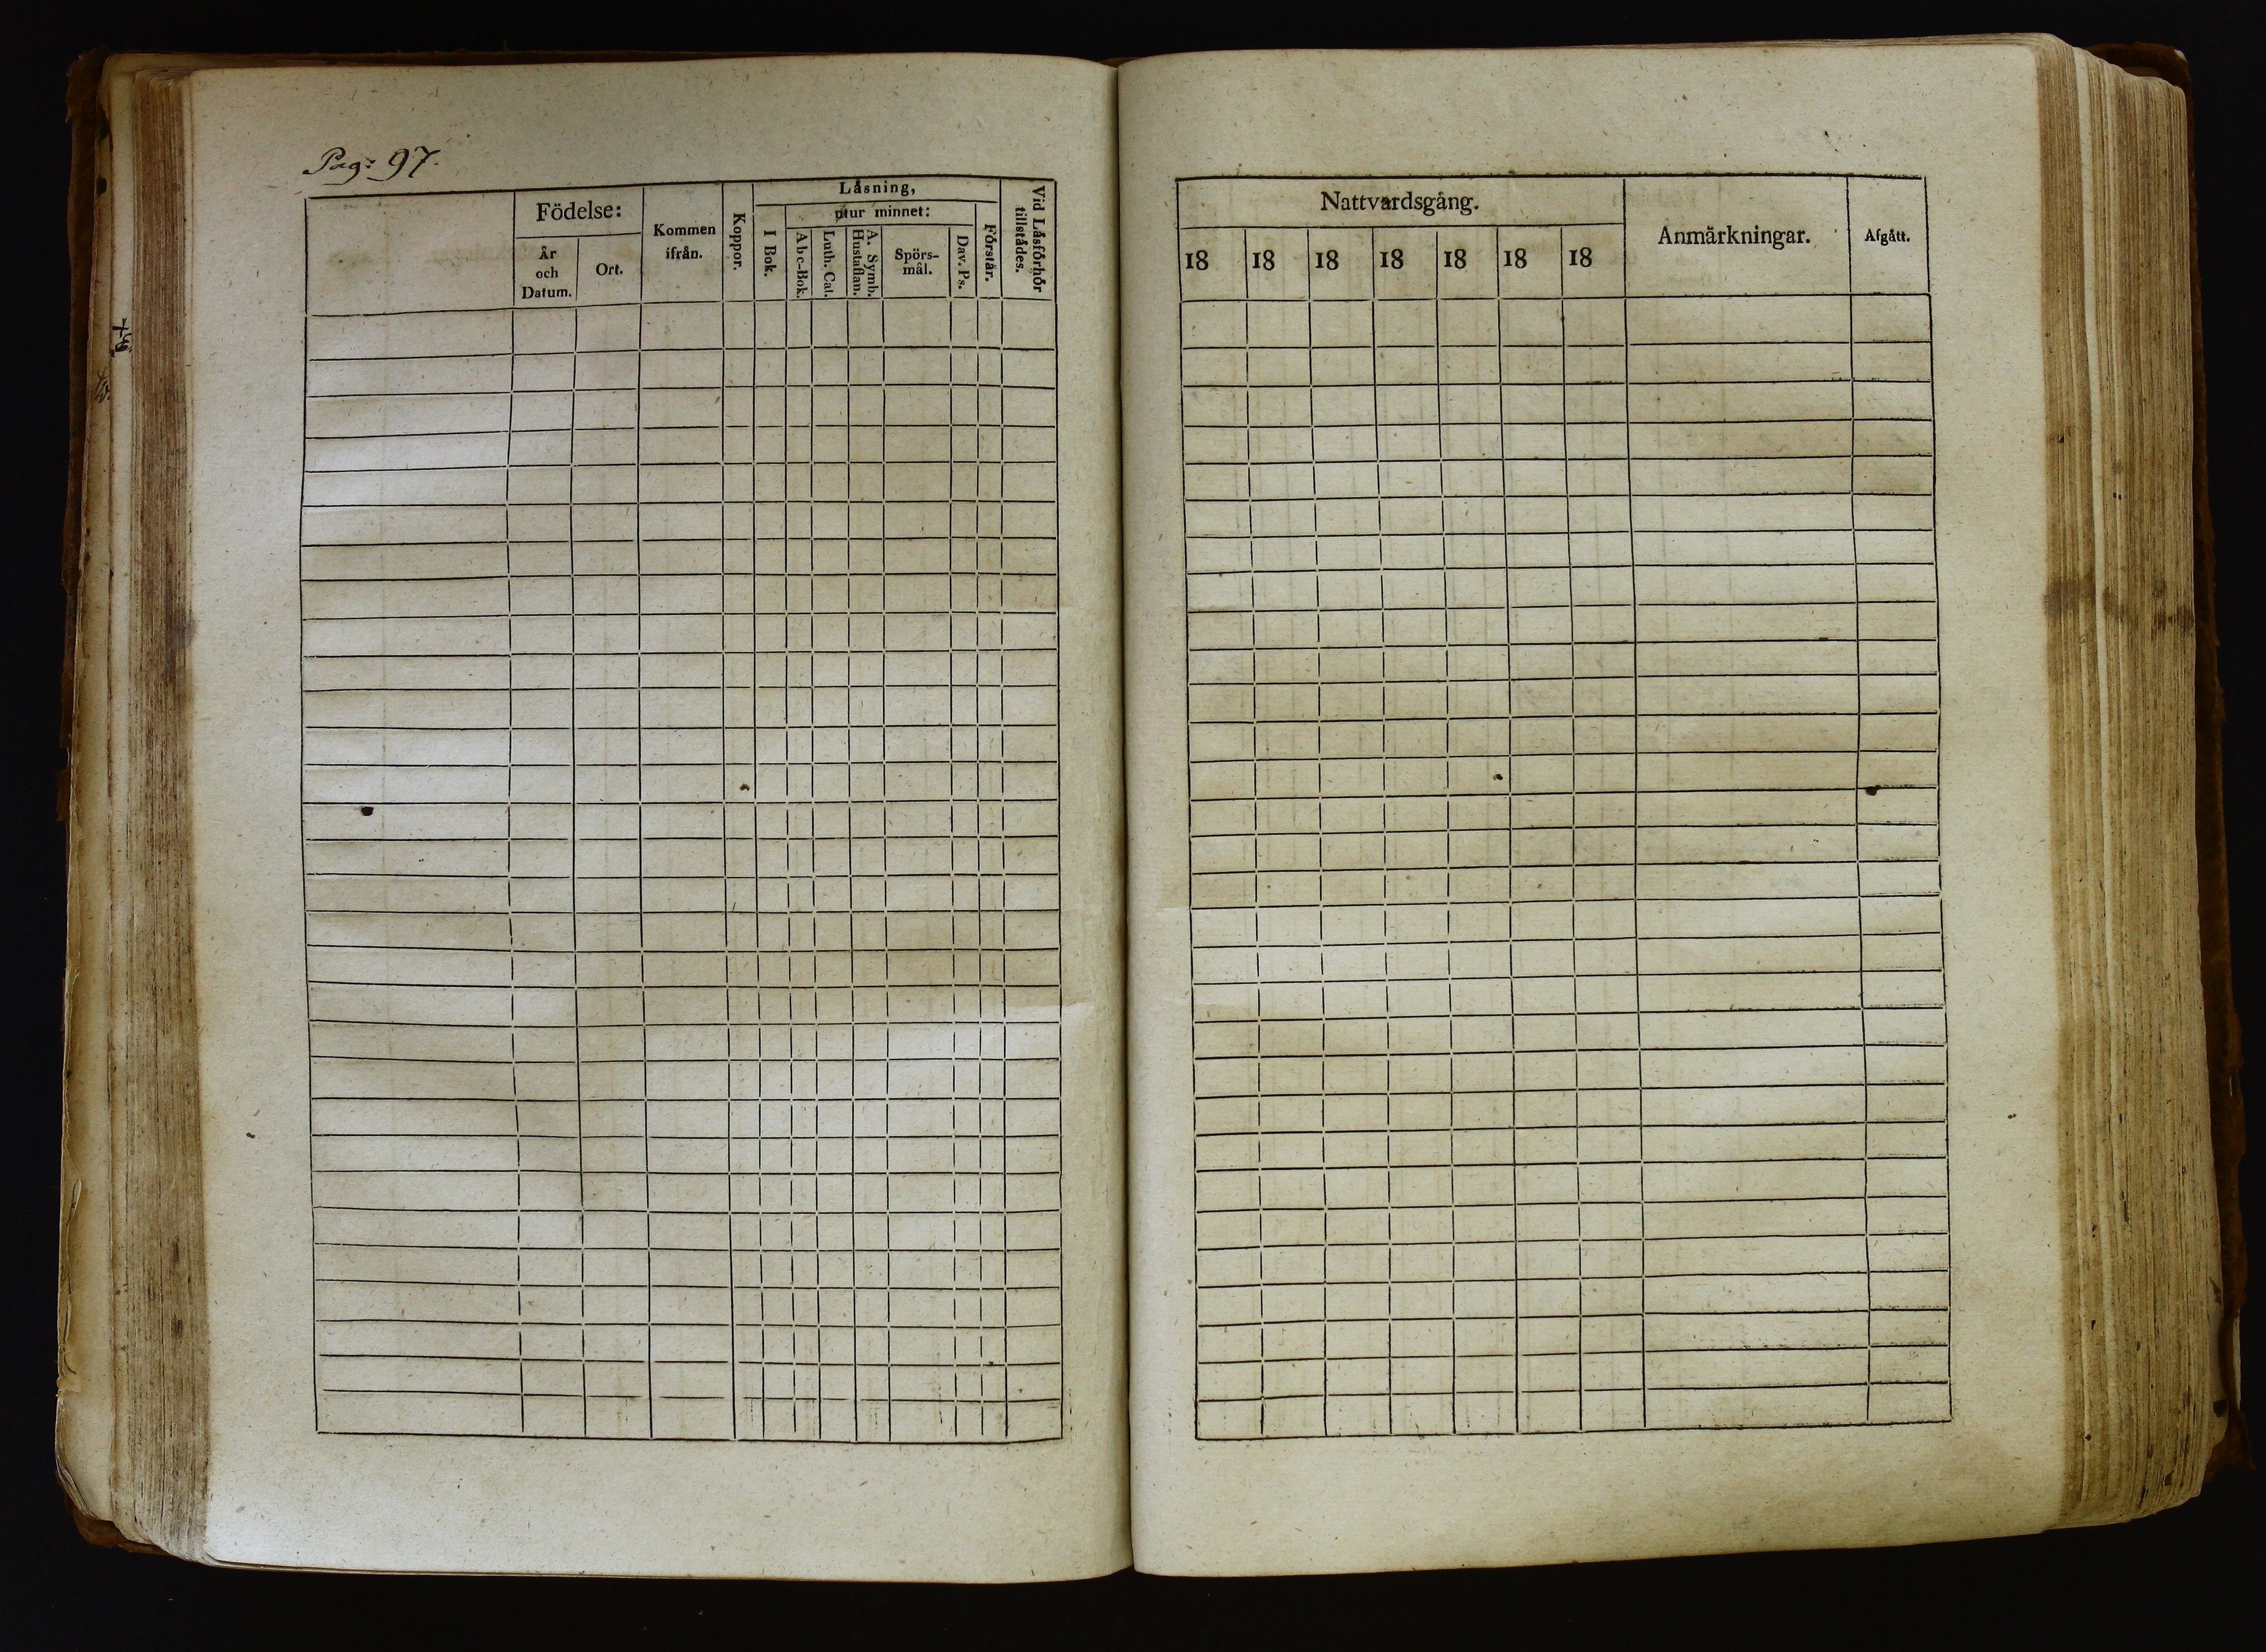 Pag: 97.
Födelse:
År
och
Datum.
Ort.
Kommen
ifrån.
Koppor.
Läsning,
utur minnet:
I Bok.
Abc-Bok.
Luth. Cat.
A. Symb.
Hustaflan.
Spörs-
mål.
Dav. Ps.
Förstår.
Vid Läsförhör
tillstädes.
Nattvardsgång.
18 18 18 18 18 18 18
Anmärkningar.
Afgått.